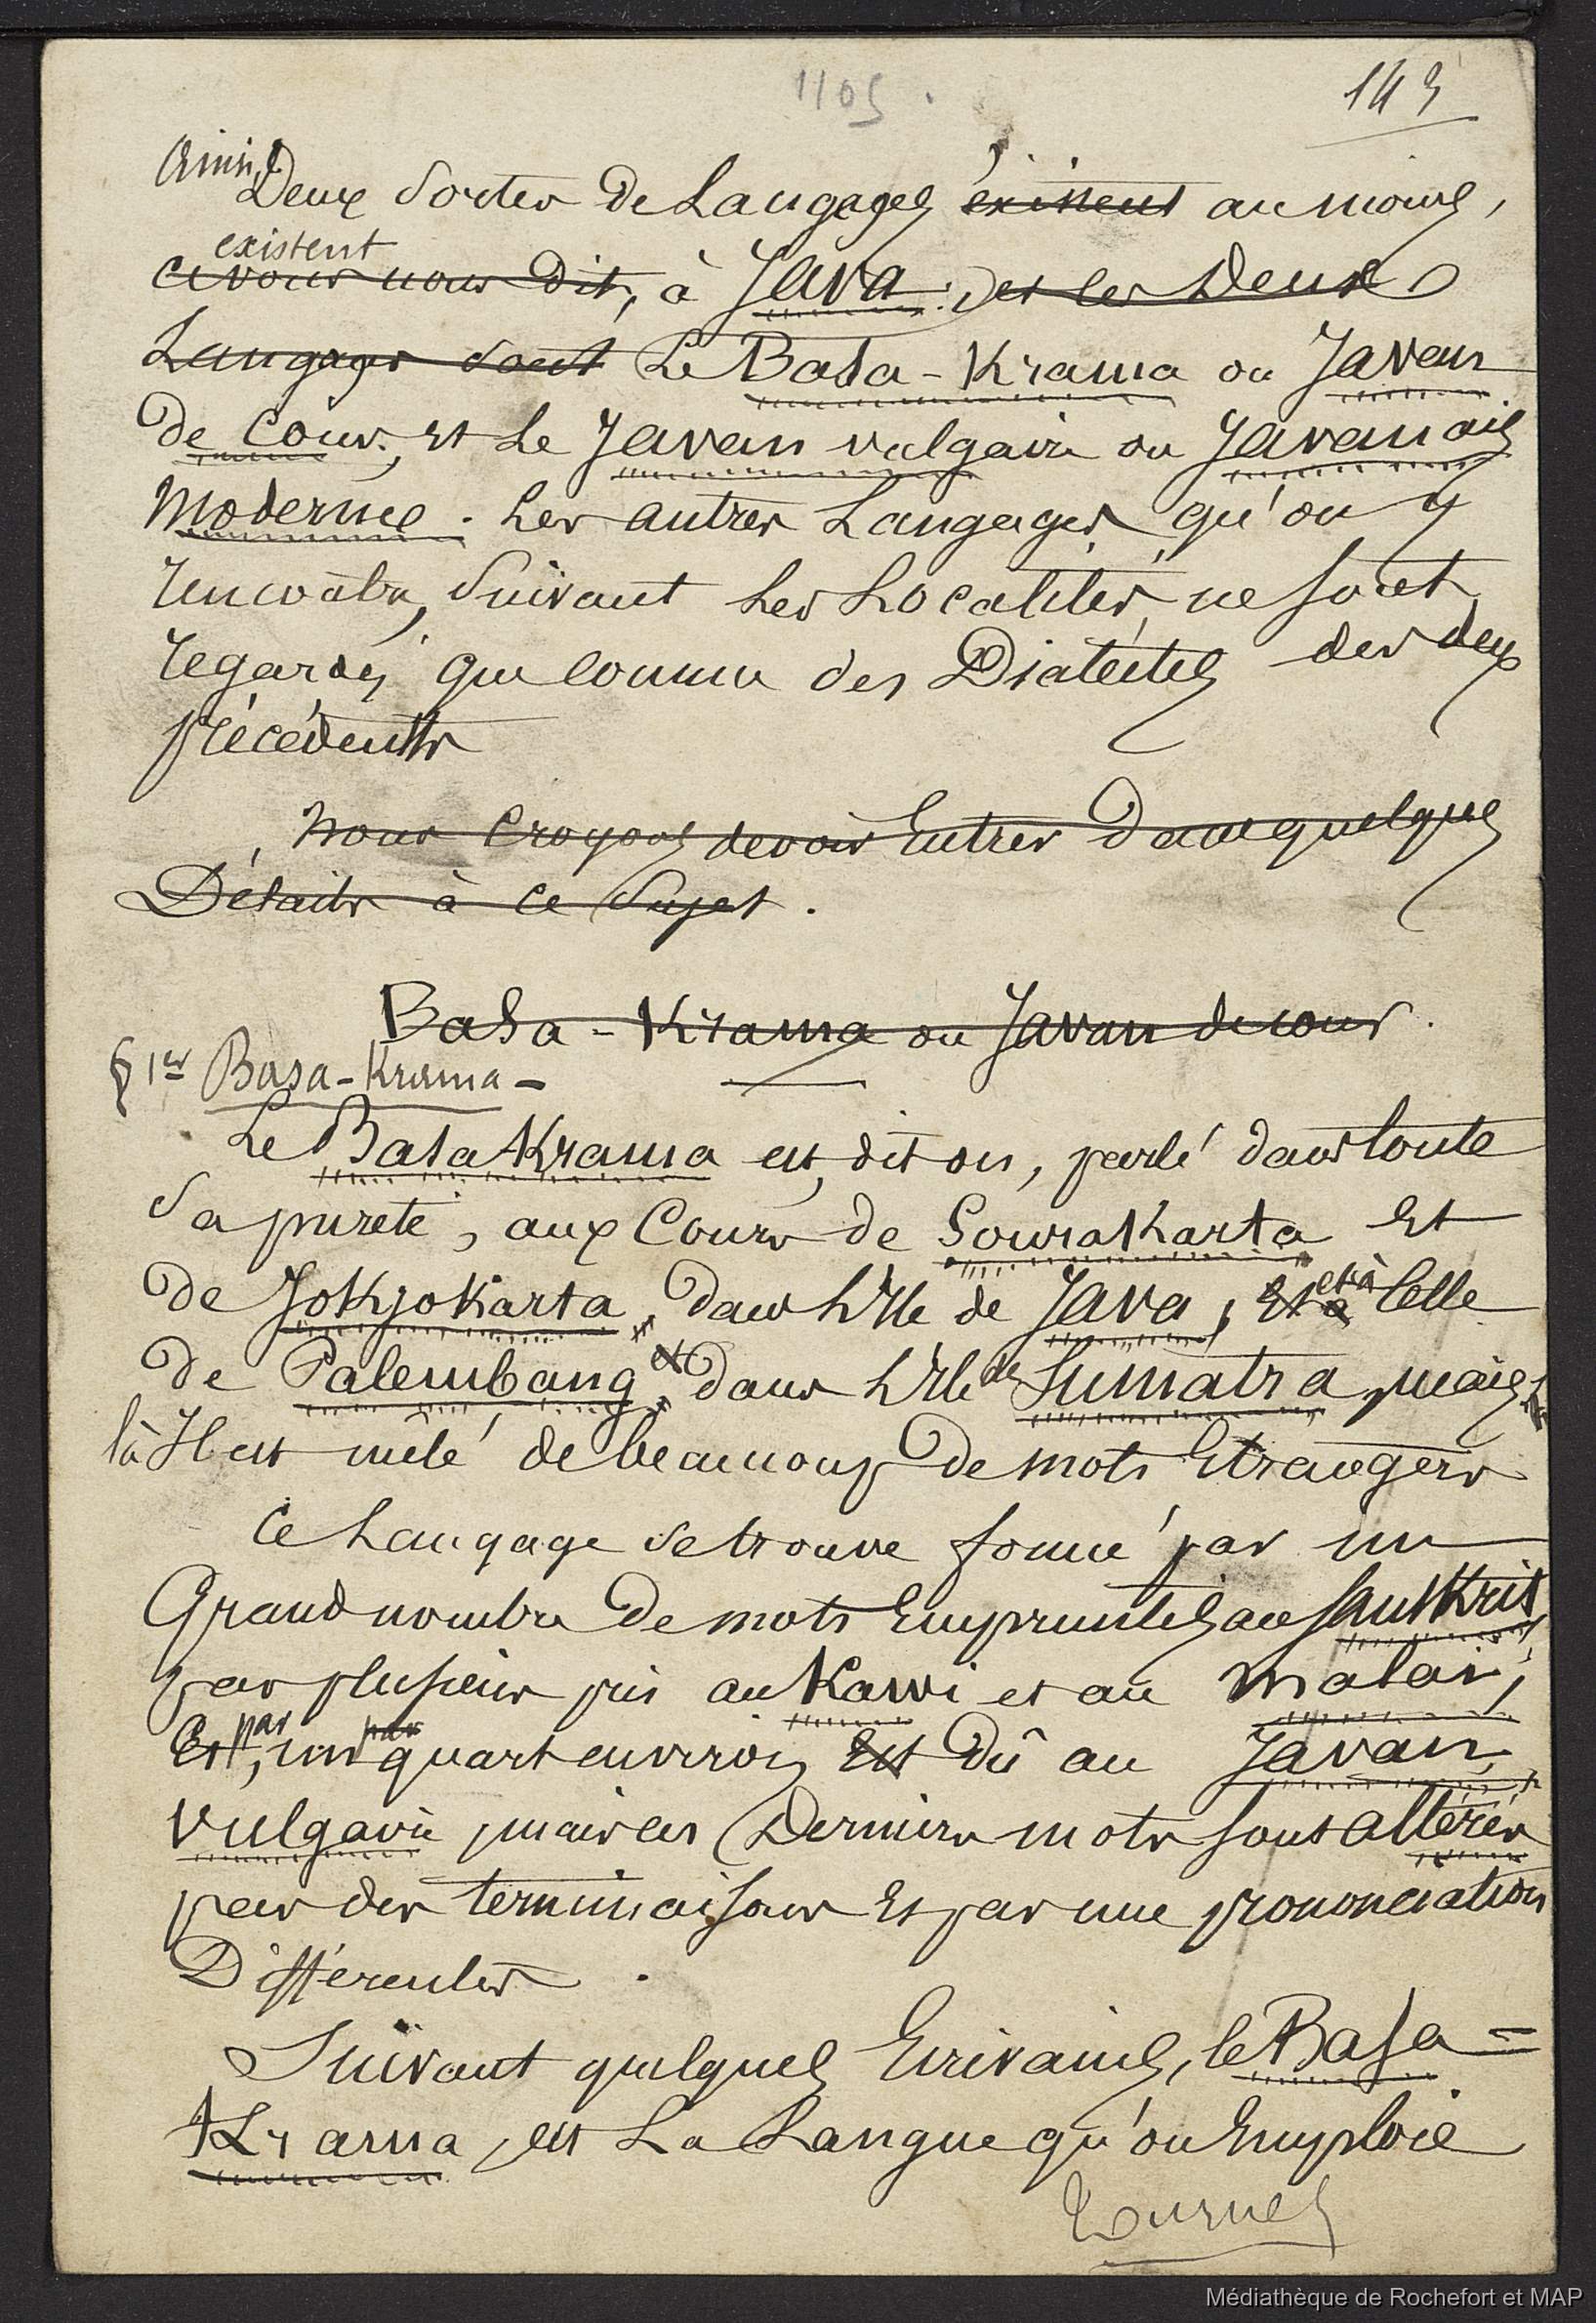 1105.
143
Ainsi,
Deux sortes de Langages existent au moins,
existent
avons nous dit, à Java. et les Deux
Langages sont Le Basa-Krama ou Javan
de Cour, et Le Javan vulgaire ou Javanais
Moderne. Les autres Langages qu'on y
rencontre, suivant Les Localités, ne sont
regardés que comme des Dialectes des deux
précédents
Nous Croyons devoir Entrer dans quelques
Détails à ce sujet.
Basa-Krama ou Javan de cour.
§ 1er Basa-Krama-
Le Basa Krama est, dit on, parlé dans toute
sa pureté, aux Cours de Sourakarta Et
de Jokjokarta, dans L'Ile de Java, Et à et à Celle
de Palembang, dans L'Ile de Sumatra, mais
là Il est mêlé de beaucoup de mots Etrangers
Ce Langage se trouve formé par un
Grand nombre de mots Empruntés au Sanskrit,
par plusieurs pris au Kawi et au Malai;
Et, par un par quart environ Est Dû au Javan
vulgaire, mais ces Derniers mots sont altérés
par des terminaisons Et par une prononciation
Différentes.
Suivant quelques Ecrivains, le Basa=
Krama, est La Langue qu'on Emploie
Tournez
Médiathèque de Rochefort et MAP